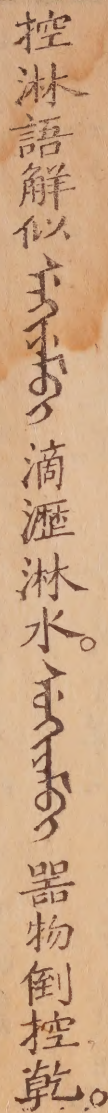 控淋語觧似滴瀝淋水。器物倒控乾。